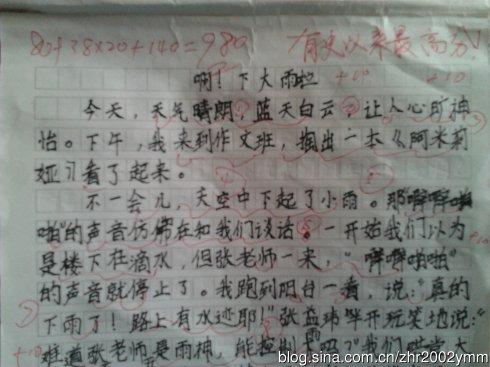 80+38×20+140=980 有史以来最高分!
啊!下大雨啦 +10 +10
今天,天气晴朗,蓝天白云,让人心旷神
怡。下午,我来到作文班,掏出一本《阿米莉
娅》看了起来。
不一会儿,天空中下起了小雨。那哗哗啪
啪的声音仿佛在和我们谈话。一开始我们以为
是楼下在滴水,但张老师一来,“哗哗啪啪”
的声音就停止了。我跑到阳台一看,说:“真的
下雨了!路上有水迹耶!”张益玮半开玩笑地说:“
+10 难道张老师是雨神,能控制
blog.sina.com.cn/zhr2002ymm